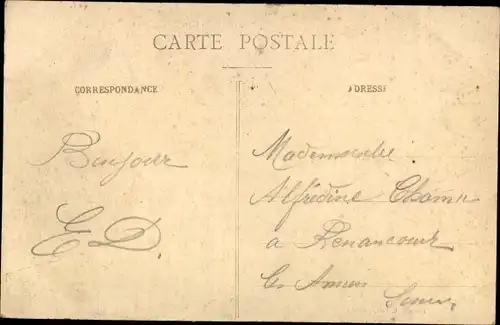 CARTE POSTALE
CORRESPONDANCE
ADRESSE
Bonjour
ED.
Mademoiselle
Alfrédine
a Renancourt
les Amiens
Somme